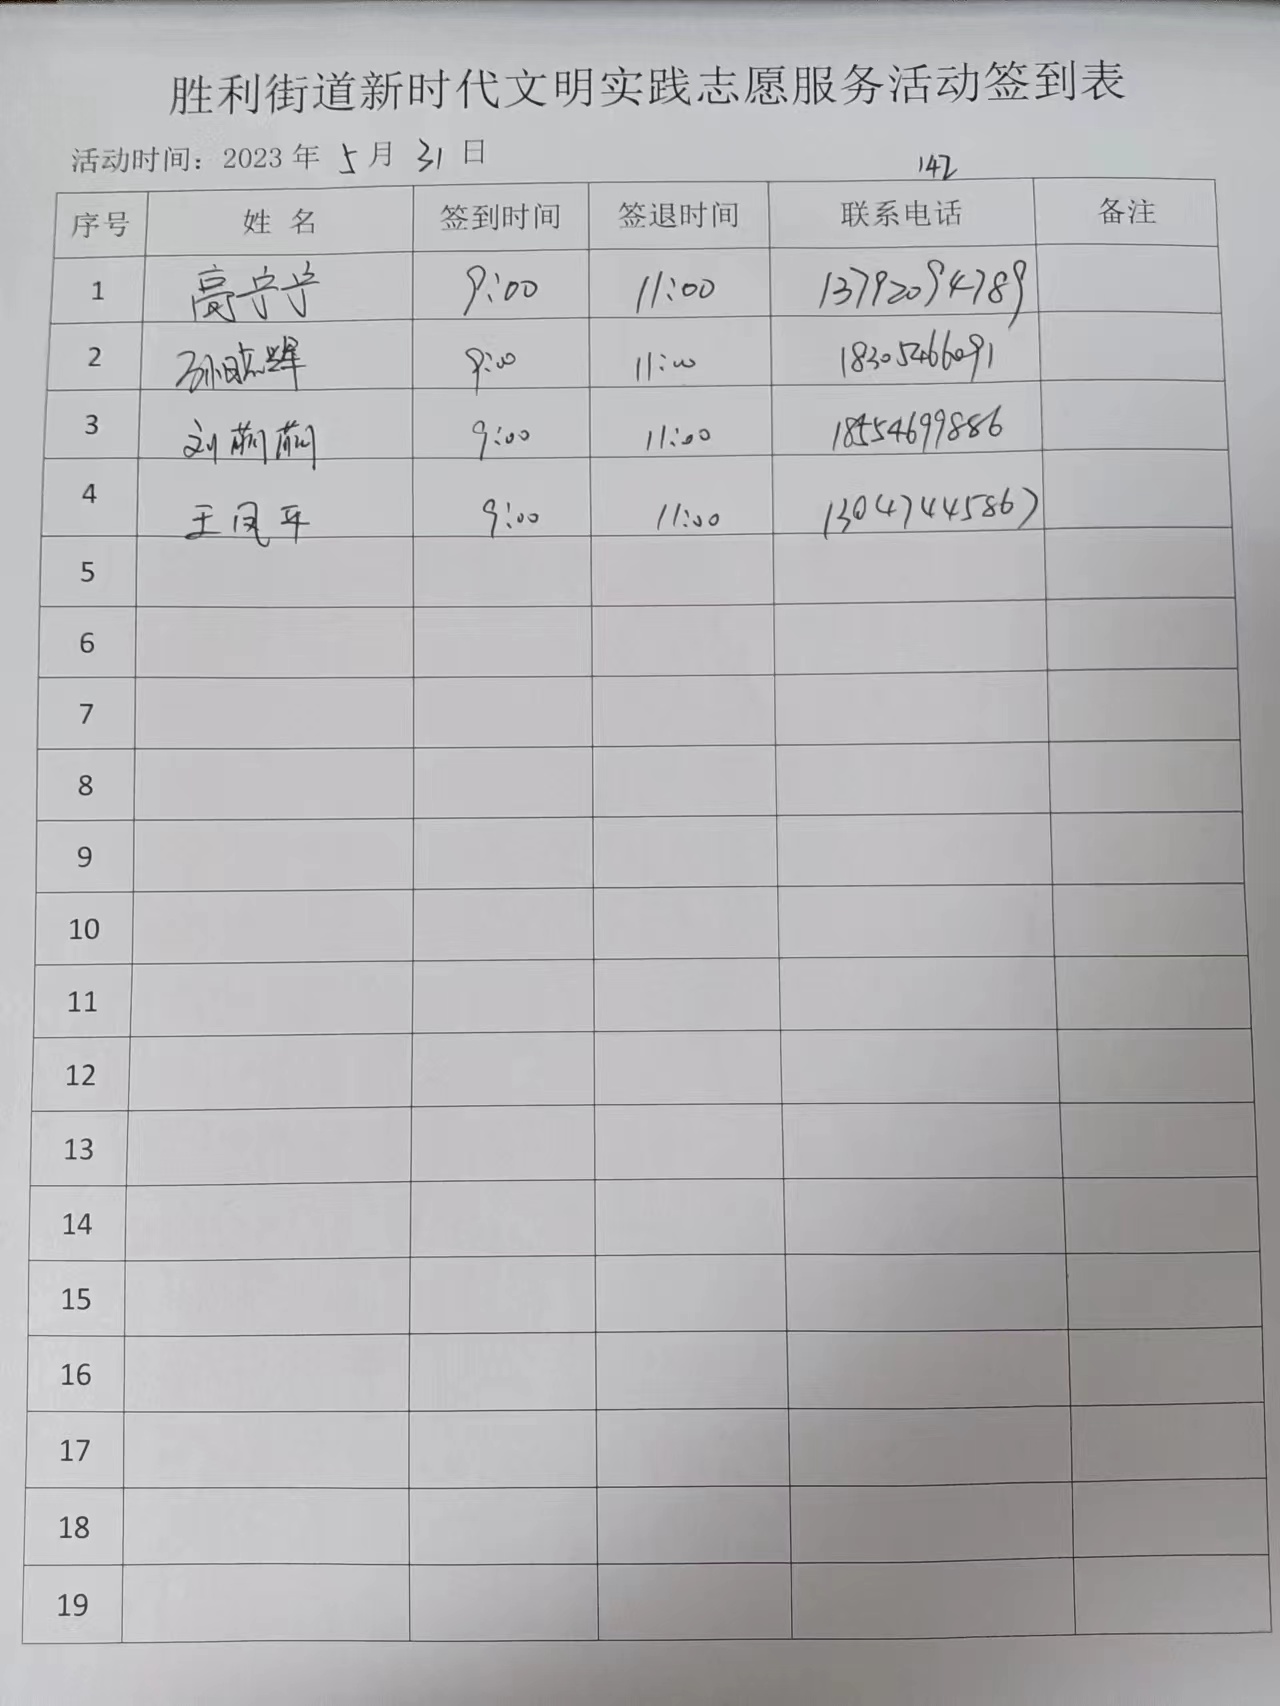 胜利街道新时代文明实践志愿服务活动签到表
活动时间：2023年 5 月 31 日
142
序号 姓 名 签到时间 签退时间 联系电话 备注
1 高宁宁 9:00 11:00 13792094789
2 孙晓辉 9:00 11:00 18305466091
3 刘莉莉 9:00 11:00 18554699886
4 王凤平 9:00 11:00 13047445867
5
6
7
8
9
10
11
12
13
14
15
16
17
18
19